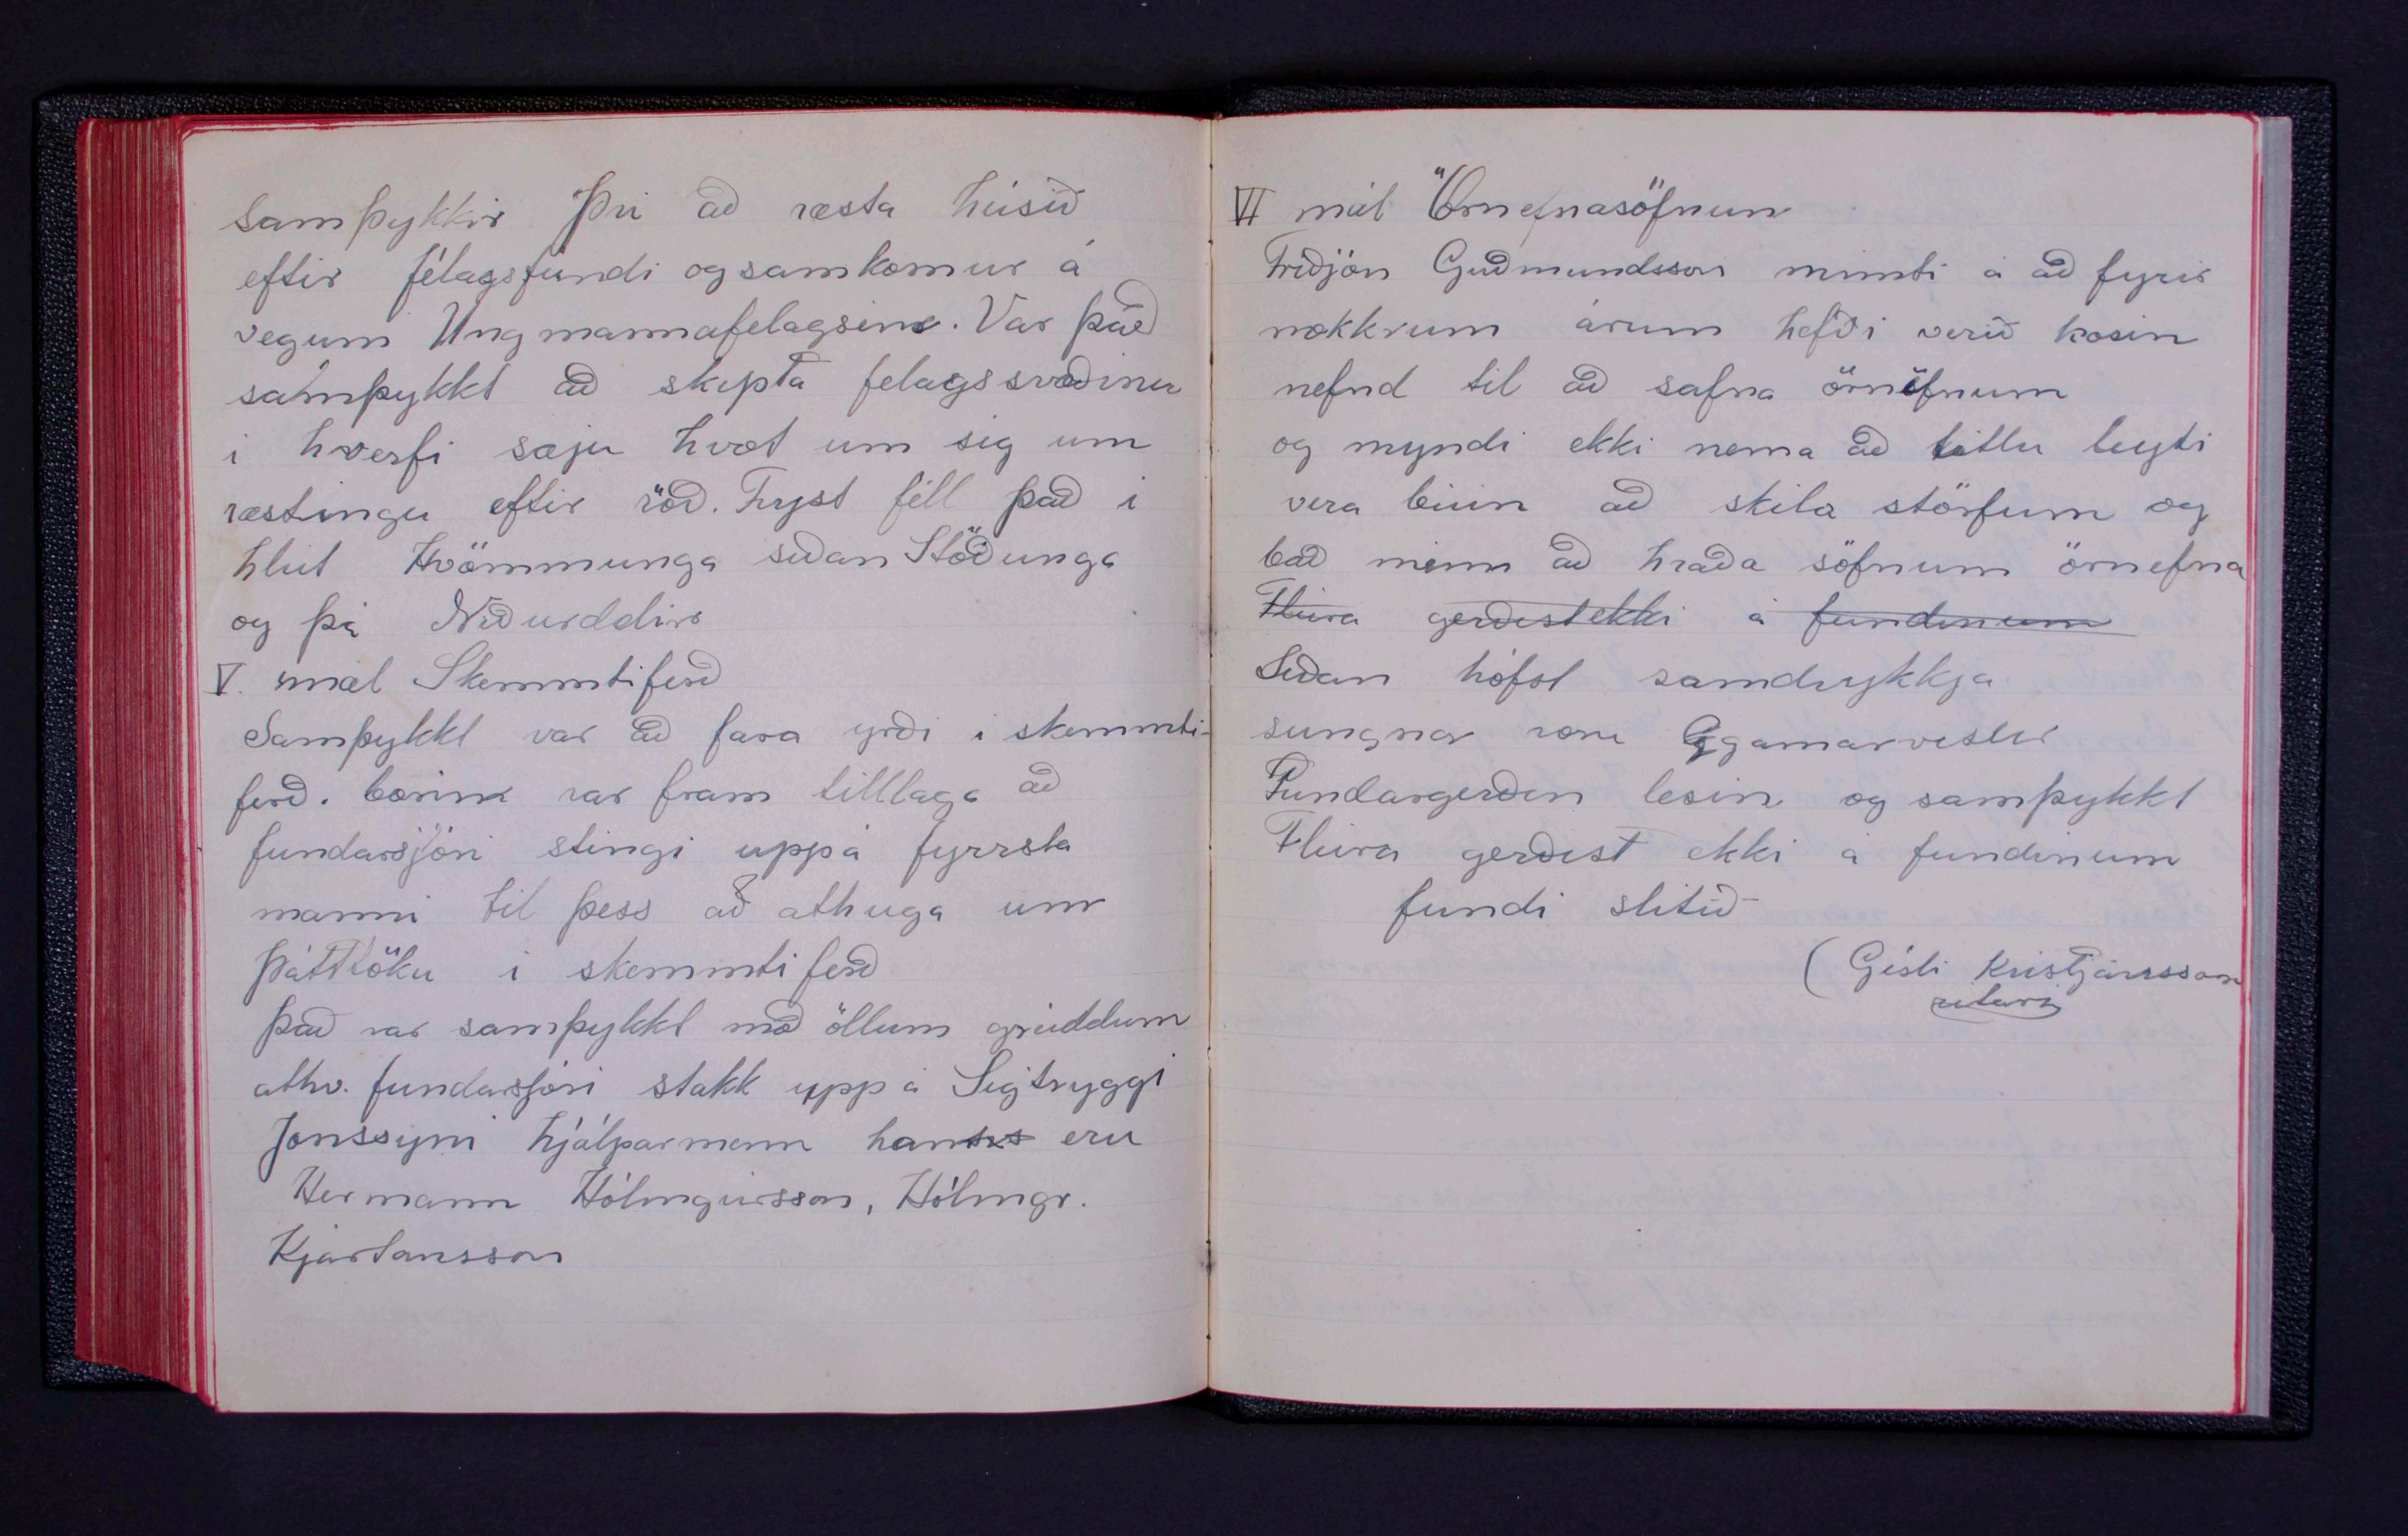 samþykkir því að ræsta húsið
eftir félagsfundi og samkomur á
vegum Ungmannafelagsins. Var það
samþykkt að skipta felagssvæðinu
i hverfi sæju hvæt um sig um
ræstingu eftir röð. Fryst féll það i
hlut Hvömmunga siðan Stöðunga
og þá Niðurddirs
V. mæl Skemmtiferð
Samþykkt var að fara yrði i skemmti-
ferð. borin var fram tilllaga að
fundarsjóri stingi uppá fyrrsta
manni til þess að athuga um
þátttöku i skemmtiferð
það var samþykkt með öllum greiddum
athv. fundarsjóri stakk upp á Sigtryggi
Jonssyni hjálparmenn hans eru
Hermann Hólmgeirsson, Hólmgr.
Kjartansson
VI mál Örnefnasöfnun
Friðjón Guðmundsson minnti á að fyrir
nokkrum árum hefði verið kosin
nefnd til að safna örnöfnum
og myndi ekki nema að litlu leyti
vera búin að skila störfum og
bað menn að hraða söfnum örnefna
Fleira gerðist ekki á fundinum
Siðan hófst samdrykkja
sungnar voru Ggamarvisur
Fundargerðin lesin og samþykkt
Fleira gerðist ekki á fundinum
fundi slitið
(Gísli Kristjánsson
ritari